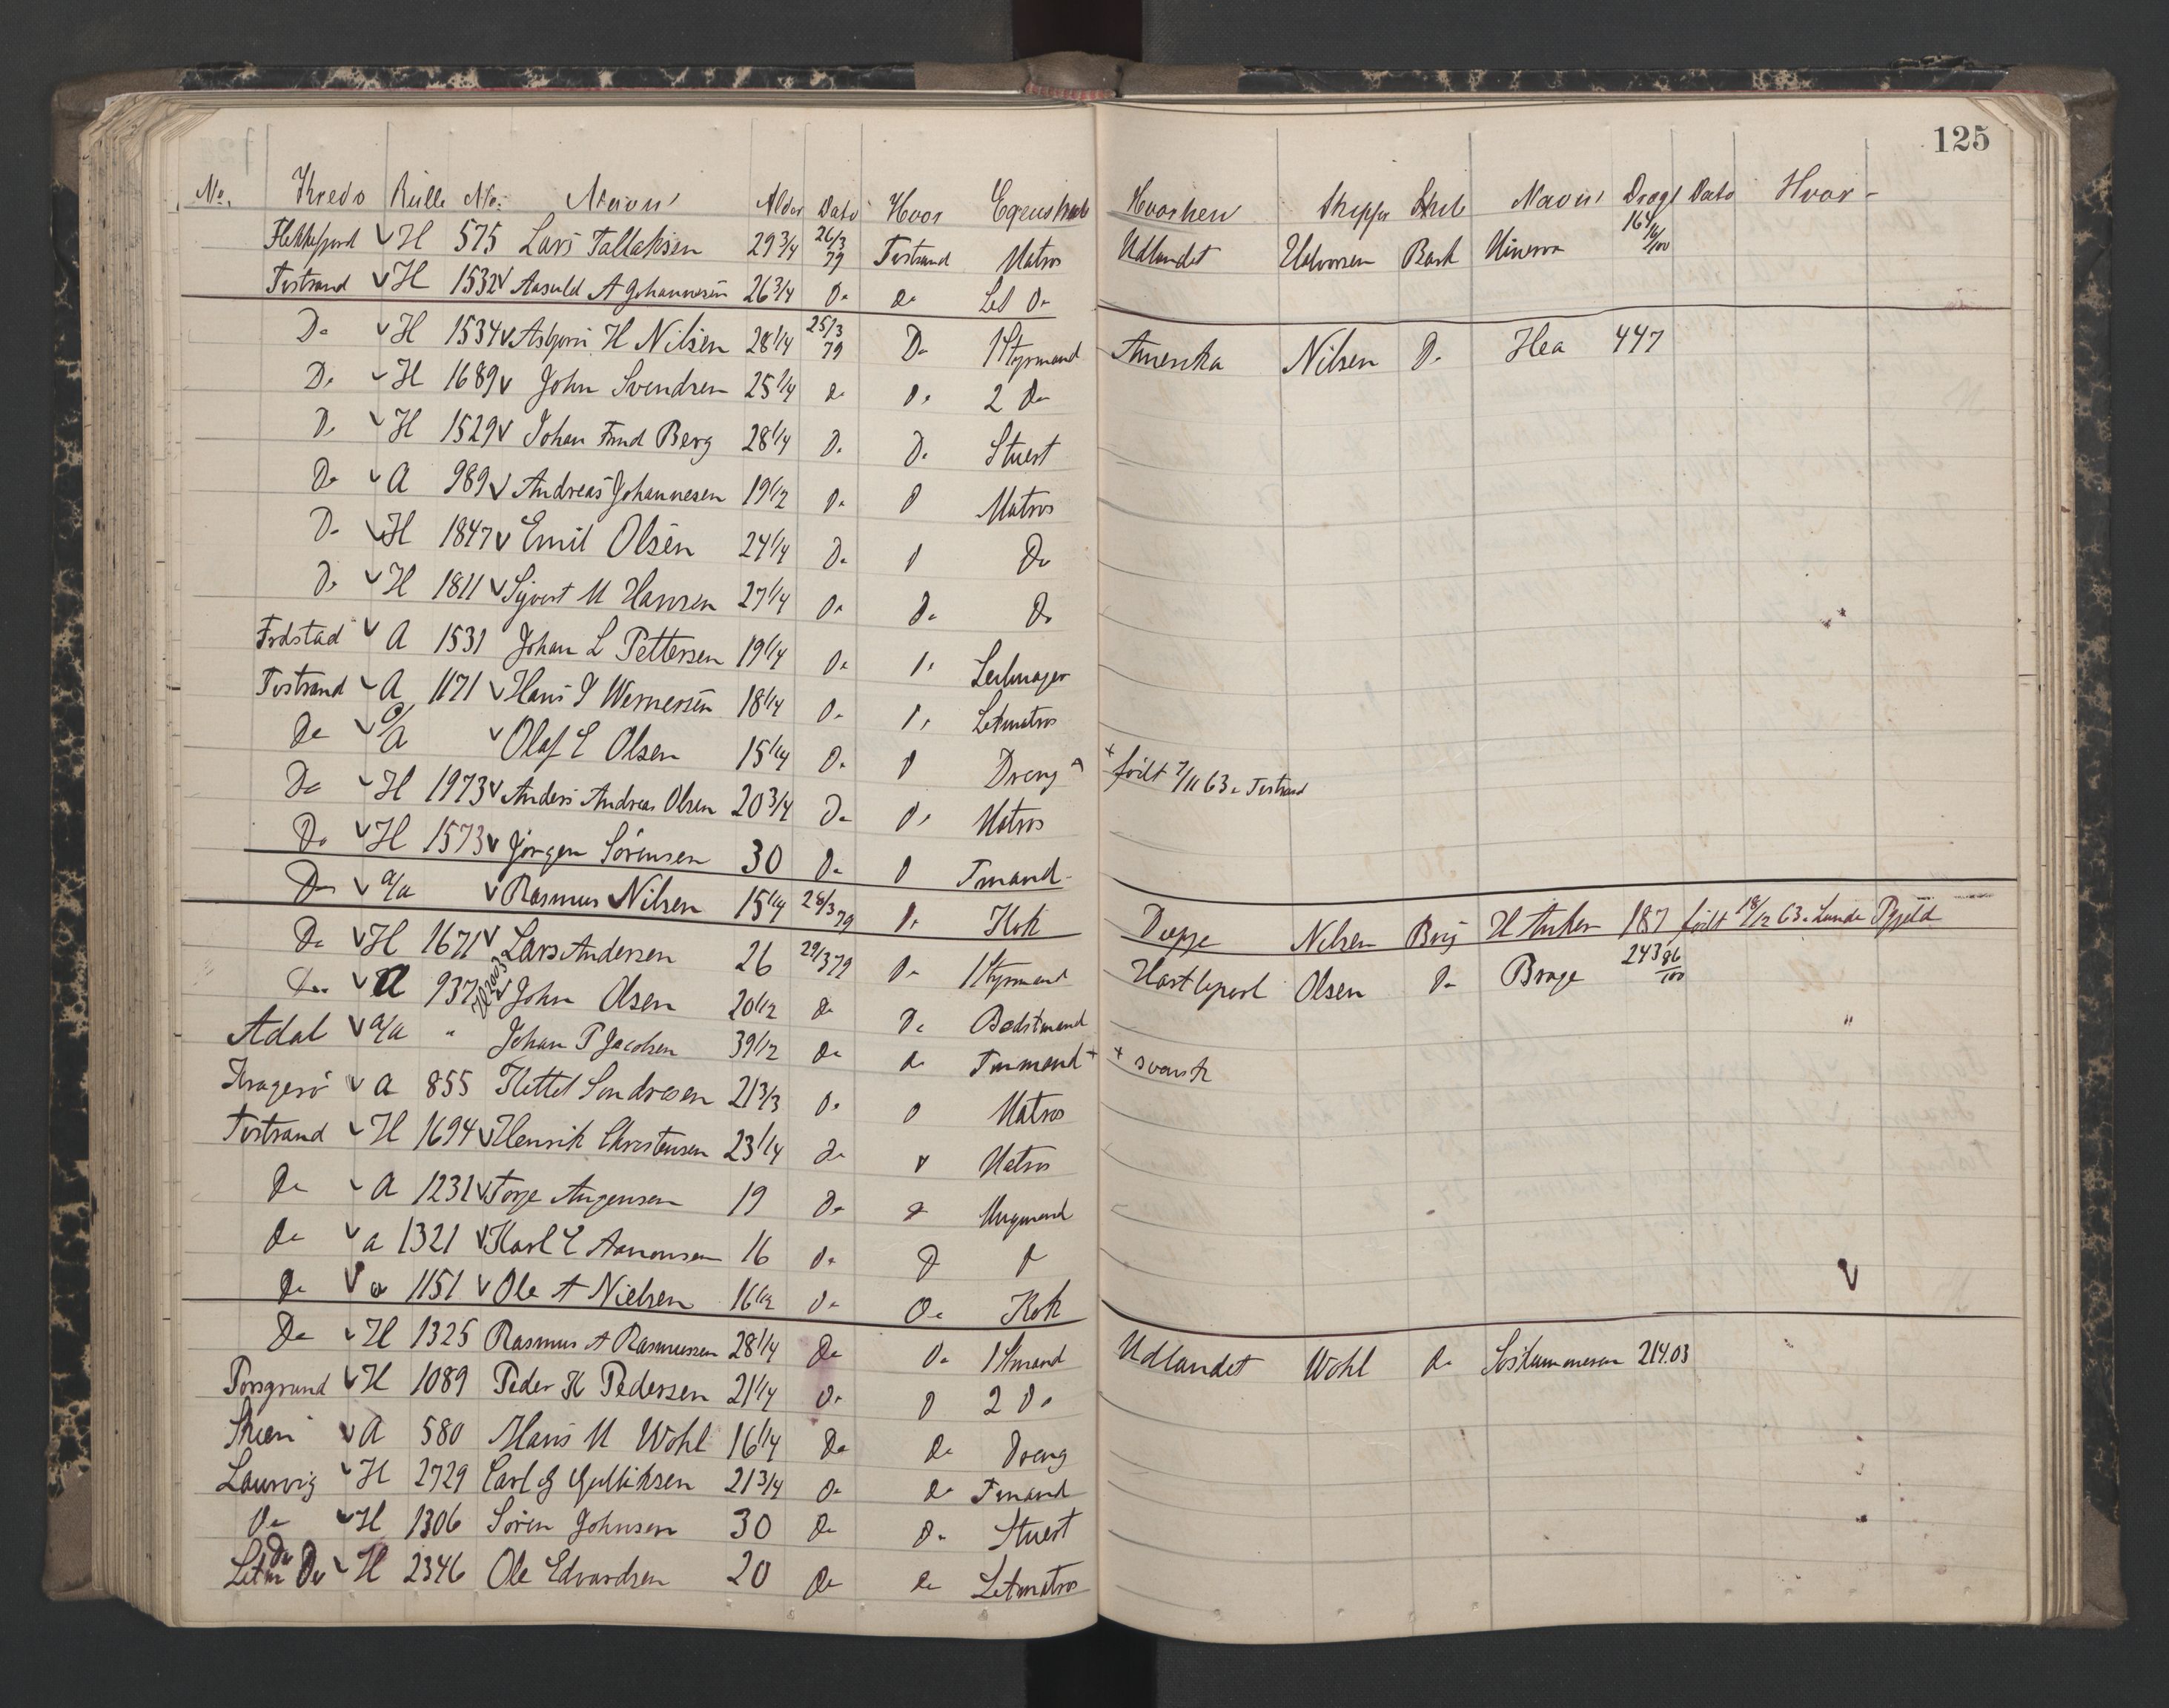 125
No. Kreds Rulle No: Navn Alder Dato Hvor Egenskab Hvorhen Skipper Skib Navn Drægt Dato Hvor
Flekkefjord H 575 Lars Tallaksen 29 3/4 26/3 79 Tvstrand Matros Udlandet Halvorsen Bark Minerva 164
Tvstrand H 1532 Aasuld A Johannesen 26 3/4 Do do Let Do
Do H 1534 Asbjørn H Nilsen 28 1/4 25/3 79 Do 1 Styrmand Amerika Nilsen Do Hea 447
Do H 1689 John Svendsen 25 1/4 do Do 2 Do
Do H 1529 Johan Berg 28 1/4 Do Do Stuert
Do A 989 Andreas Johannesen 19 1/2 Do D Matros
Do H 1847 Emil Olsen 24 1/4 Do D Do
Do H 1811 Sijvert M Hansen 27 1/4 Do Do Do
Frdstad A 1531 Johan L Pettersen 19 1/4 Do Do Seilmager
Tvstrand A 1171 Hans J Wernersen 18 1/4 Do Do Letmatros
Do a/a Olaf E Olsen 15 1/4 Do D Dreng + født 7/11 63 Tvstrand
Do H 1973 Anders Andreas Olsen 20 3/4 Do Do Matros
Do H 1573 Jørgen Sørensen 30 Do D Tmand
Do a/a Rasmus Nilsen 15 1/4 28/3 79 Do Kok Dieppe Nilsen Brig H Anker 187 født 18/12 63 Lunde
Do H 1671 Lars Andersen 26 29/3 79 Do 1 Styrmand Hartlepool Olsen Do Brage 243 86/100
Do A 937 John Olsen 20 1/2 do Do Bodstmand "
Adal a/a " Johan P Jacobsen 39 1/2 do do Tmmand + + svensk
Kragerø A 855 Kittel Sondresen 21 3/3 Do D Matros
Tvstrand H 1694 Henrik Christensen 23 1/4 do Matros
Do A 1231 Torje Augensen 19 Do Ungmand
Do a 1321 Karl E Aanonsen 16 Do D D
Do a 1151 Ole A Nielsen 16 1/2 Do Do Kok
Do H 1325 Rasmus A Rasmussen 28 1/4 Do Do 1 Stmand Udlandet Wohl do 214.03
Porsgrund H 1089 Peder K Pedersen 21 1/4 Do D 2 Do
Skien A 580 Hans M Wohl 16 1/4 Do do Dreng
Laurvig H 2729 Carl G Gulliksen 21 3/4 Do do Tmand
Do H 1306 Sören Johnsen 30 Do Do Stuert
Do Do H 2346 Ole Edvardsen 20 Do do Letmatros